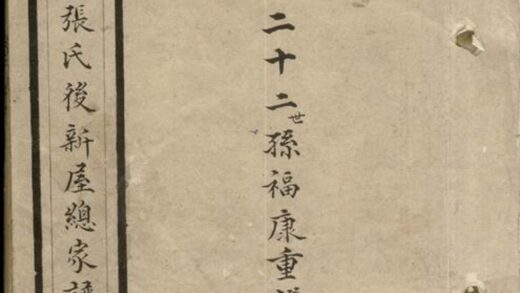 二十二世孫福康重
張氏後新屋總家譜